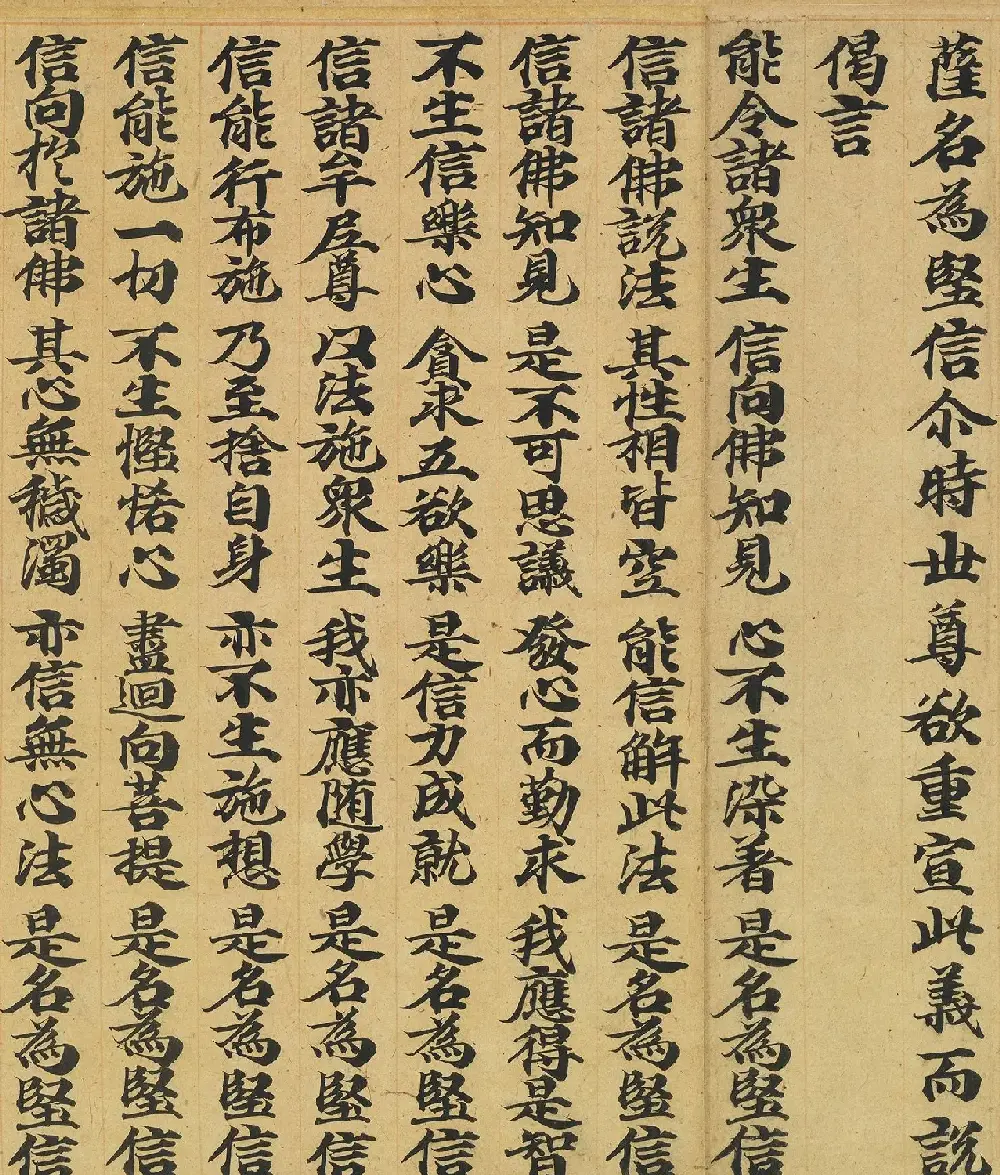 薩名為堅信尒時世尊欲重宣此義而說
偈言
能令諸衆生 信向佛知見 心不生染著 是名為堅信
信諸佛說法 其性相皆空 能信解此法 是名為堅信
信諸佛知見 是不可思議 發心而勤求 我應得是智
不生信樂心 貪求五欲樂 是信力成就 是名為堅信
信諸牟尼尊 以法施衆生 我亦應随學 是名為堅信
信能行布施 乃至捨自身 亦不生施想 是名為堅信
信能施一切 不生慳悋心 盡迴向菩提 是名為堅信
信向於諸佛 其心無穢濁 亦信無心法 是名為堅信